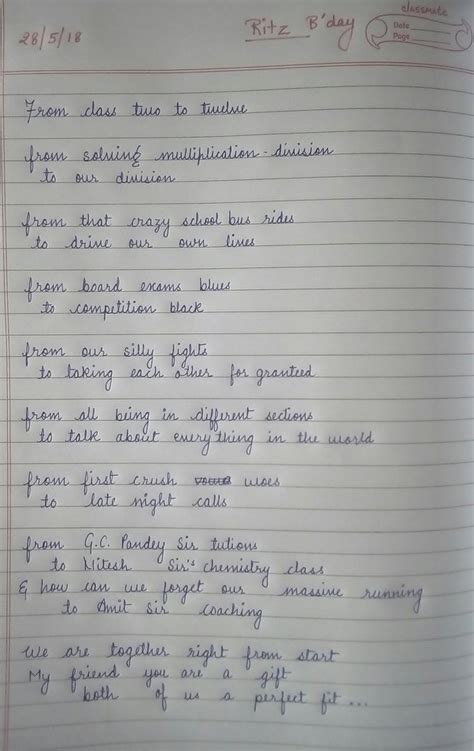 classmate
28/5/18 Ritz B'day
Date
Page
From class two to twelve
from solving multiplication-division
to our division
from that crazy school bus rides
to drive our own lives
from board exams blues
to competition black
from our silly fights
to taking each other for granted
from all being in different sections
to talk about everything in the world
from first crush woes
to late night calls
from G.C. Pandey Sir tutions
to Nitesh Sir's chemistry class
& how can we forget our massive running
to Amit Sir coaching
We are together right from start
My friend you are a gift
both of us a perfect fit ...